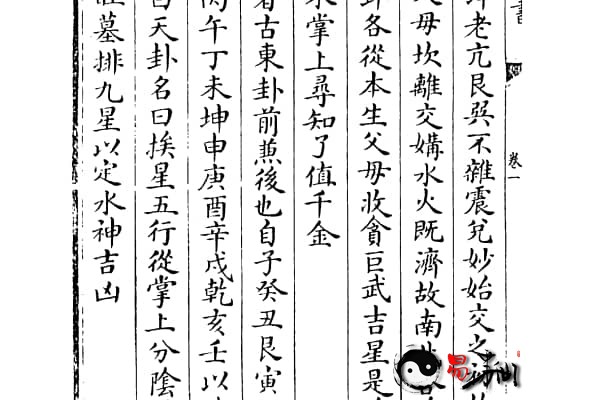 卷一
老亢艮巽不雜震兌妙始交之
母坎離交媾水火既濟故南
各從本生父母收貪巨武吉星是
掌上尋知了值千金
古東卦前兼後也自子癸丑艮寅
丙午丁未坤申庚酉辛戌乾亥壬以
天卦名曰挨星五行從掌上分陰
墓排九星以定水神吉凶
易